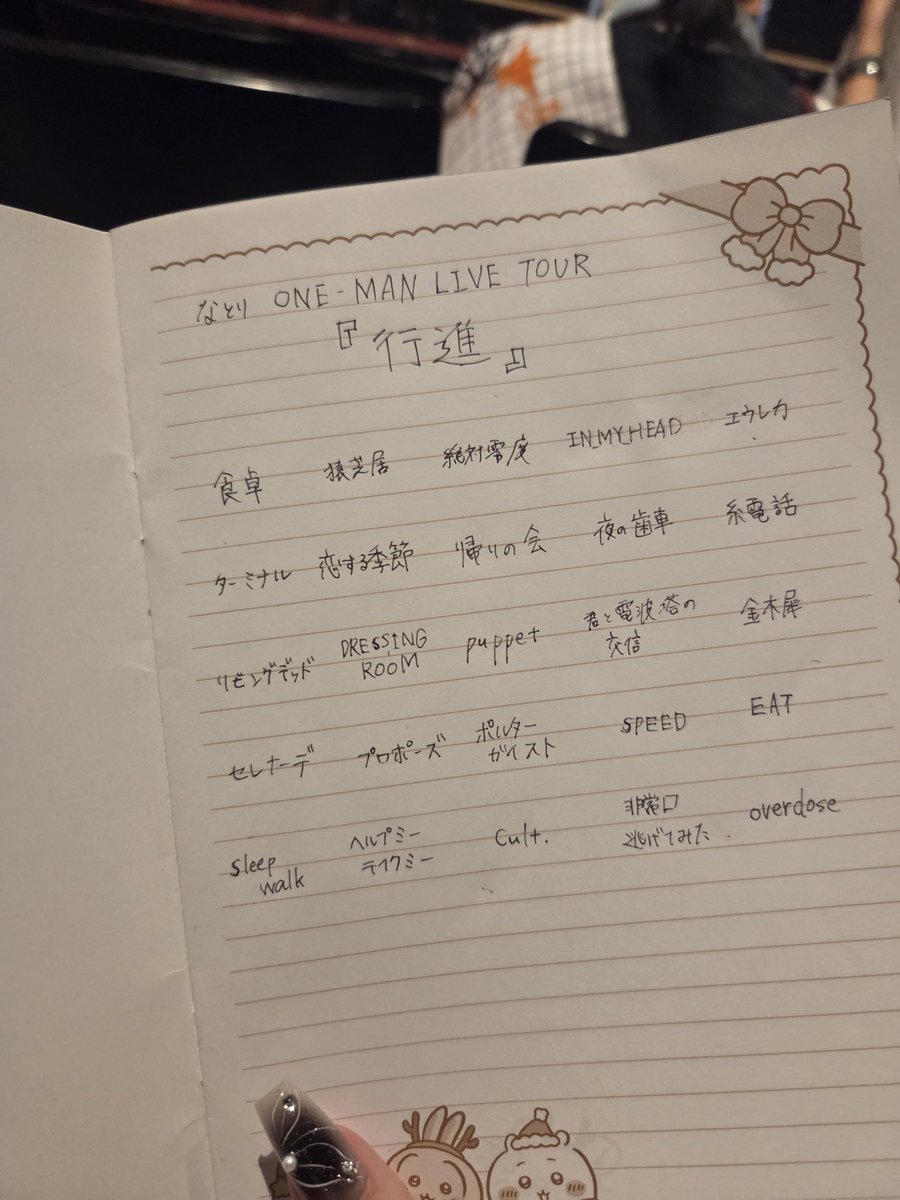 なとり ONE-MAN LIVE TOUR
『行進』
食卓 猿芝居 絶対零度 IN_MY_HEAD エウレカ
ターミナル 恋する季節 帰りの会 夜の歯車 糸電話
リビングデッド DRESSING ROOM puppet 君と電波塔の交信 金木犀
セレナーデ プロポーズ ポルターガイスト SPEED EAT
sleep walk ヘルプミーテイクミー Cult. 非常口逃げてみた overdose